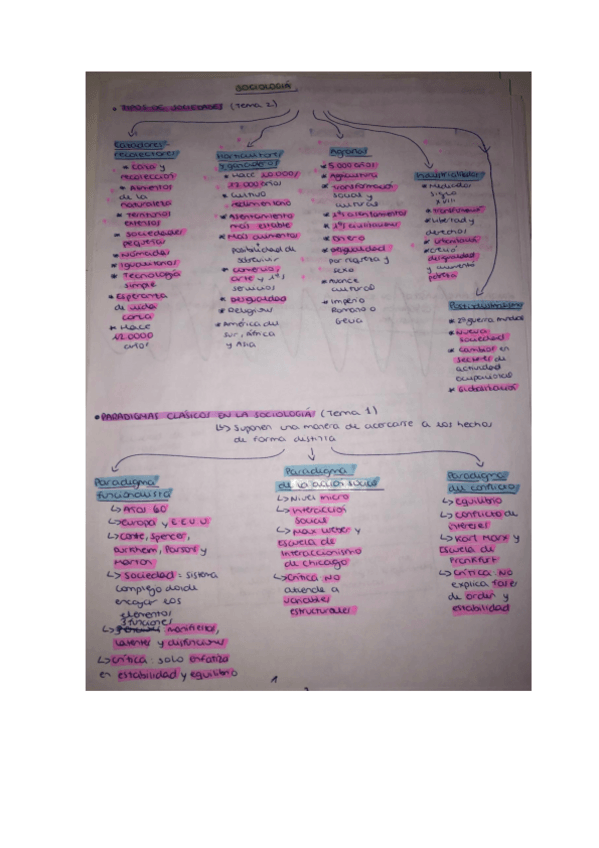 SOCIOLOGÍA
• TIPOS DE SOCIEDADES (Tema 2)
Cazadores-
recolectores
* Caza y
recolección
* Alimentos
de la
naturaleza
* Territorios
extensos
* Sociedades
pequeñas
* Nómadas
* Igualitarios
* Tecnología
simple
* Esperanza
de vida
corta
* Hace
12.0000
años
Horticultores
y ganaderos
* Hace 10.000/
12.000 años
* Cultivo
rudimentario
* Asentamiento
más estable
* Más aumentos
posibilidad de
sobrevivir
* Comercio,
arte y 1ºs
servicios
* Desigualdad
* Religión
* América del
sur, África
y Asia
Agrarias
* 5.000 años
* Agricultura
* Transformación
social y
cultural
* 1ºs asentamientos
* 1ºs civilizaciones
* Dinero
* Desigualdad
por riqueza y
sexo
* Avance
cultural
* Imperio
Romano o
Industrializadas
* Mediados
siglo
XVIII
* Transformación
* Libertad y
derechos
* Creció
desigualdad
y aumentó
pobreza
Postindustriales
* 2ª guerra mundial
* Nueva
sociedad
* Cambios en
sectores de
actividad
ocupacional
* Globalización
• PARADIGMAS CLÁSICOS EN LA SOCIOLOGÍA (Tema 1)
↳ Suponen una manera de acercarse a los hechos
de forma distinta
Paradigma
funcionalista
↳ Años 60
↳ Europa y E.E.U.U.
↳ Comte, Spencer,
Durkheim, Parsons y
Merton
↳ Sociedad = sistema
complejo donde
encajan los
elementos
funciones
↳ manifiestas,
latentes y disfunciones
↳ Crítica: solo enfatiza
en estabilidad y equilibrio
Paradigma
de la acción social
↳ Nivel micro
↳ Interacción
social
↳ Max Weber y
escuela de
Interaccionismo
de Chicago
↳ Crítica: NO
atiende a
variables
estructurales
Paradigma
del conflicto
↳ equilibrio
↳ conflicto de
intereses
↳ Karl Marx y
Escuela de
Frankfurt
↳ Crítica: NO
explica fases
de orden y
estabilidad
1